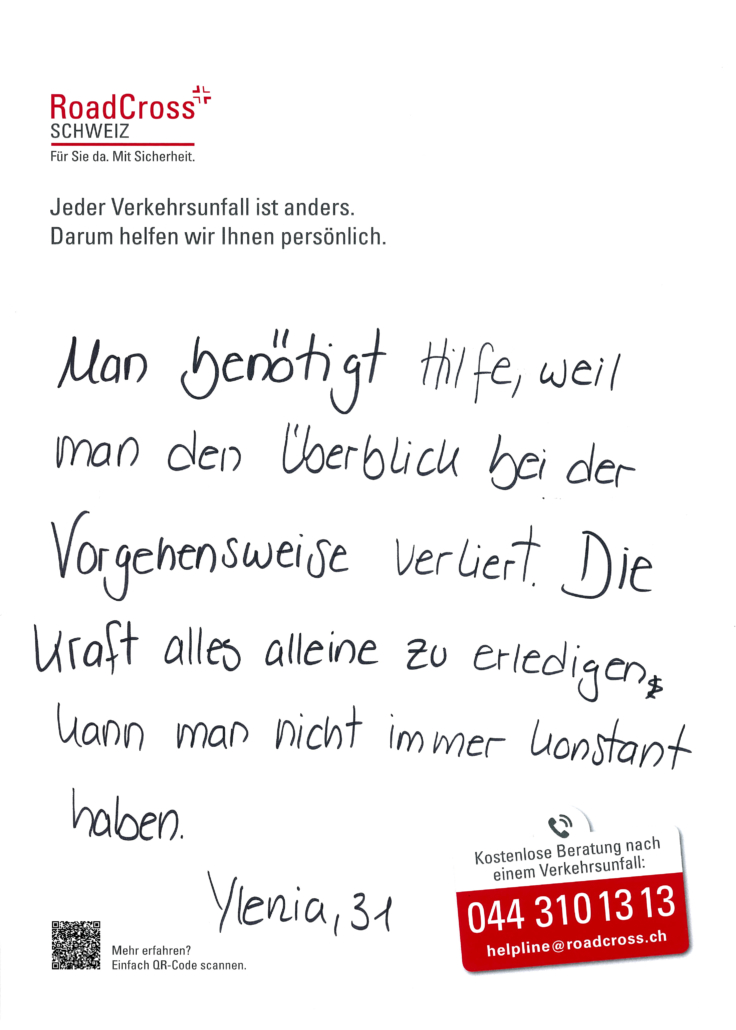 RoadCross
SCHWEIZ
Für Sie da. Mit Sicherheit.
Jeder Verkehrsunfall ist anders.
Darum helfen wir Ihnen persönlich.
Man benötigt Hilfe, weil
man den Überblick bei der
Vorgehensweise verliert. Die
Kraft alles alleine zu erledigen,
kann man nicht immer konstant
haben.
Ylenia, 31
Kostenlose Beratung nach
einem Verkehrsunfall:
044 310 13 13
helpline@roadcross.ch
Mehr erfahren?
Einfach QR-Code scannen.